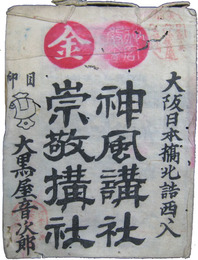 金
大阪日本橋北詰西入
神風講社
崇敬講社
目印
大黒屋音次郎